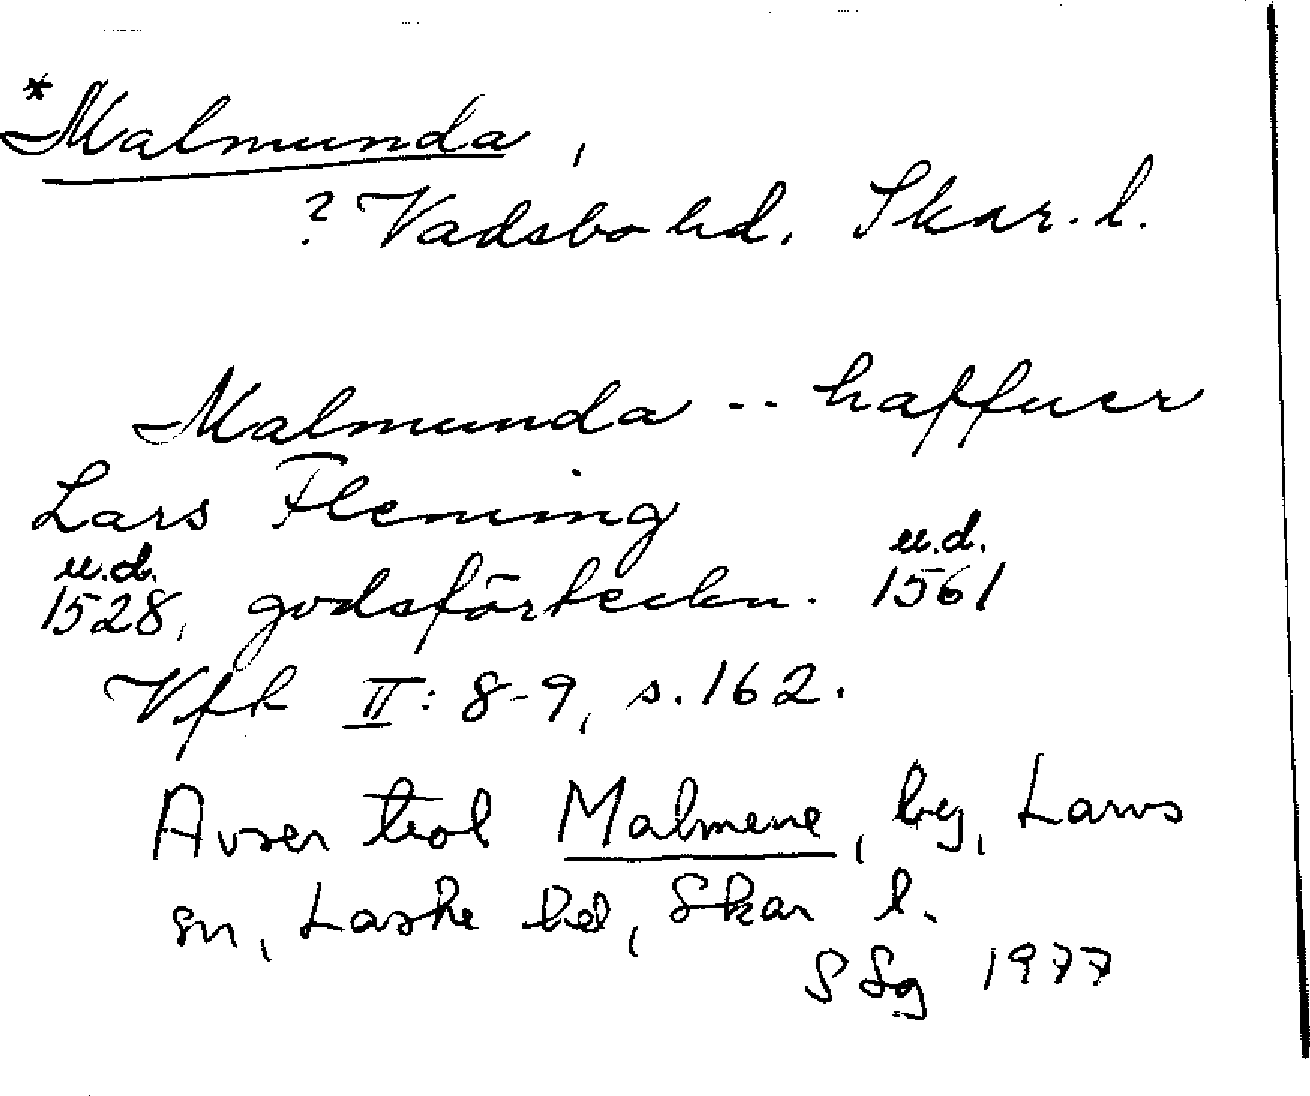 *Malmunda,
? Vadsbo hd. Skar. l.
Malmunda -- haffuer
Lars Fleming
u.d. u.d.
1528, godsförteckn. 1561
Vfk II: 8-9, s. 162.
Avser trol Malmene, by, Larvs
sn, Laske hd, Skar l.
SSg 1977